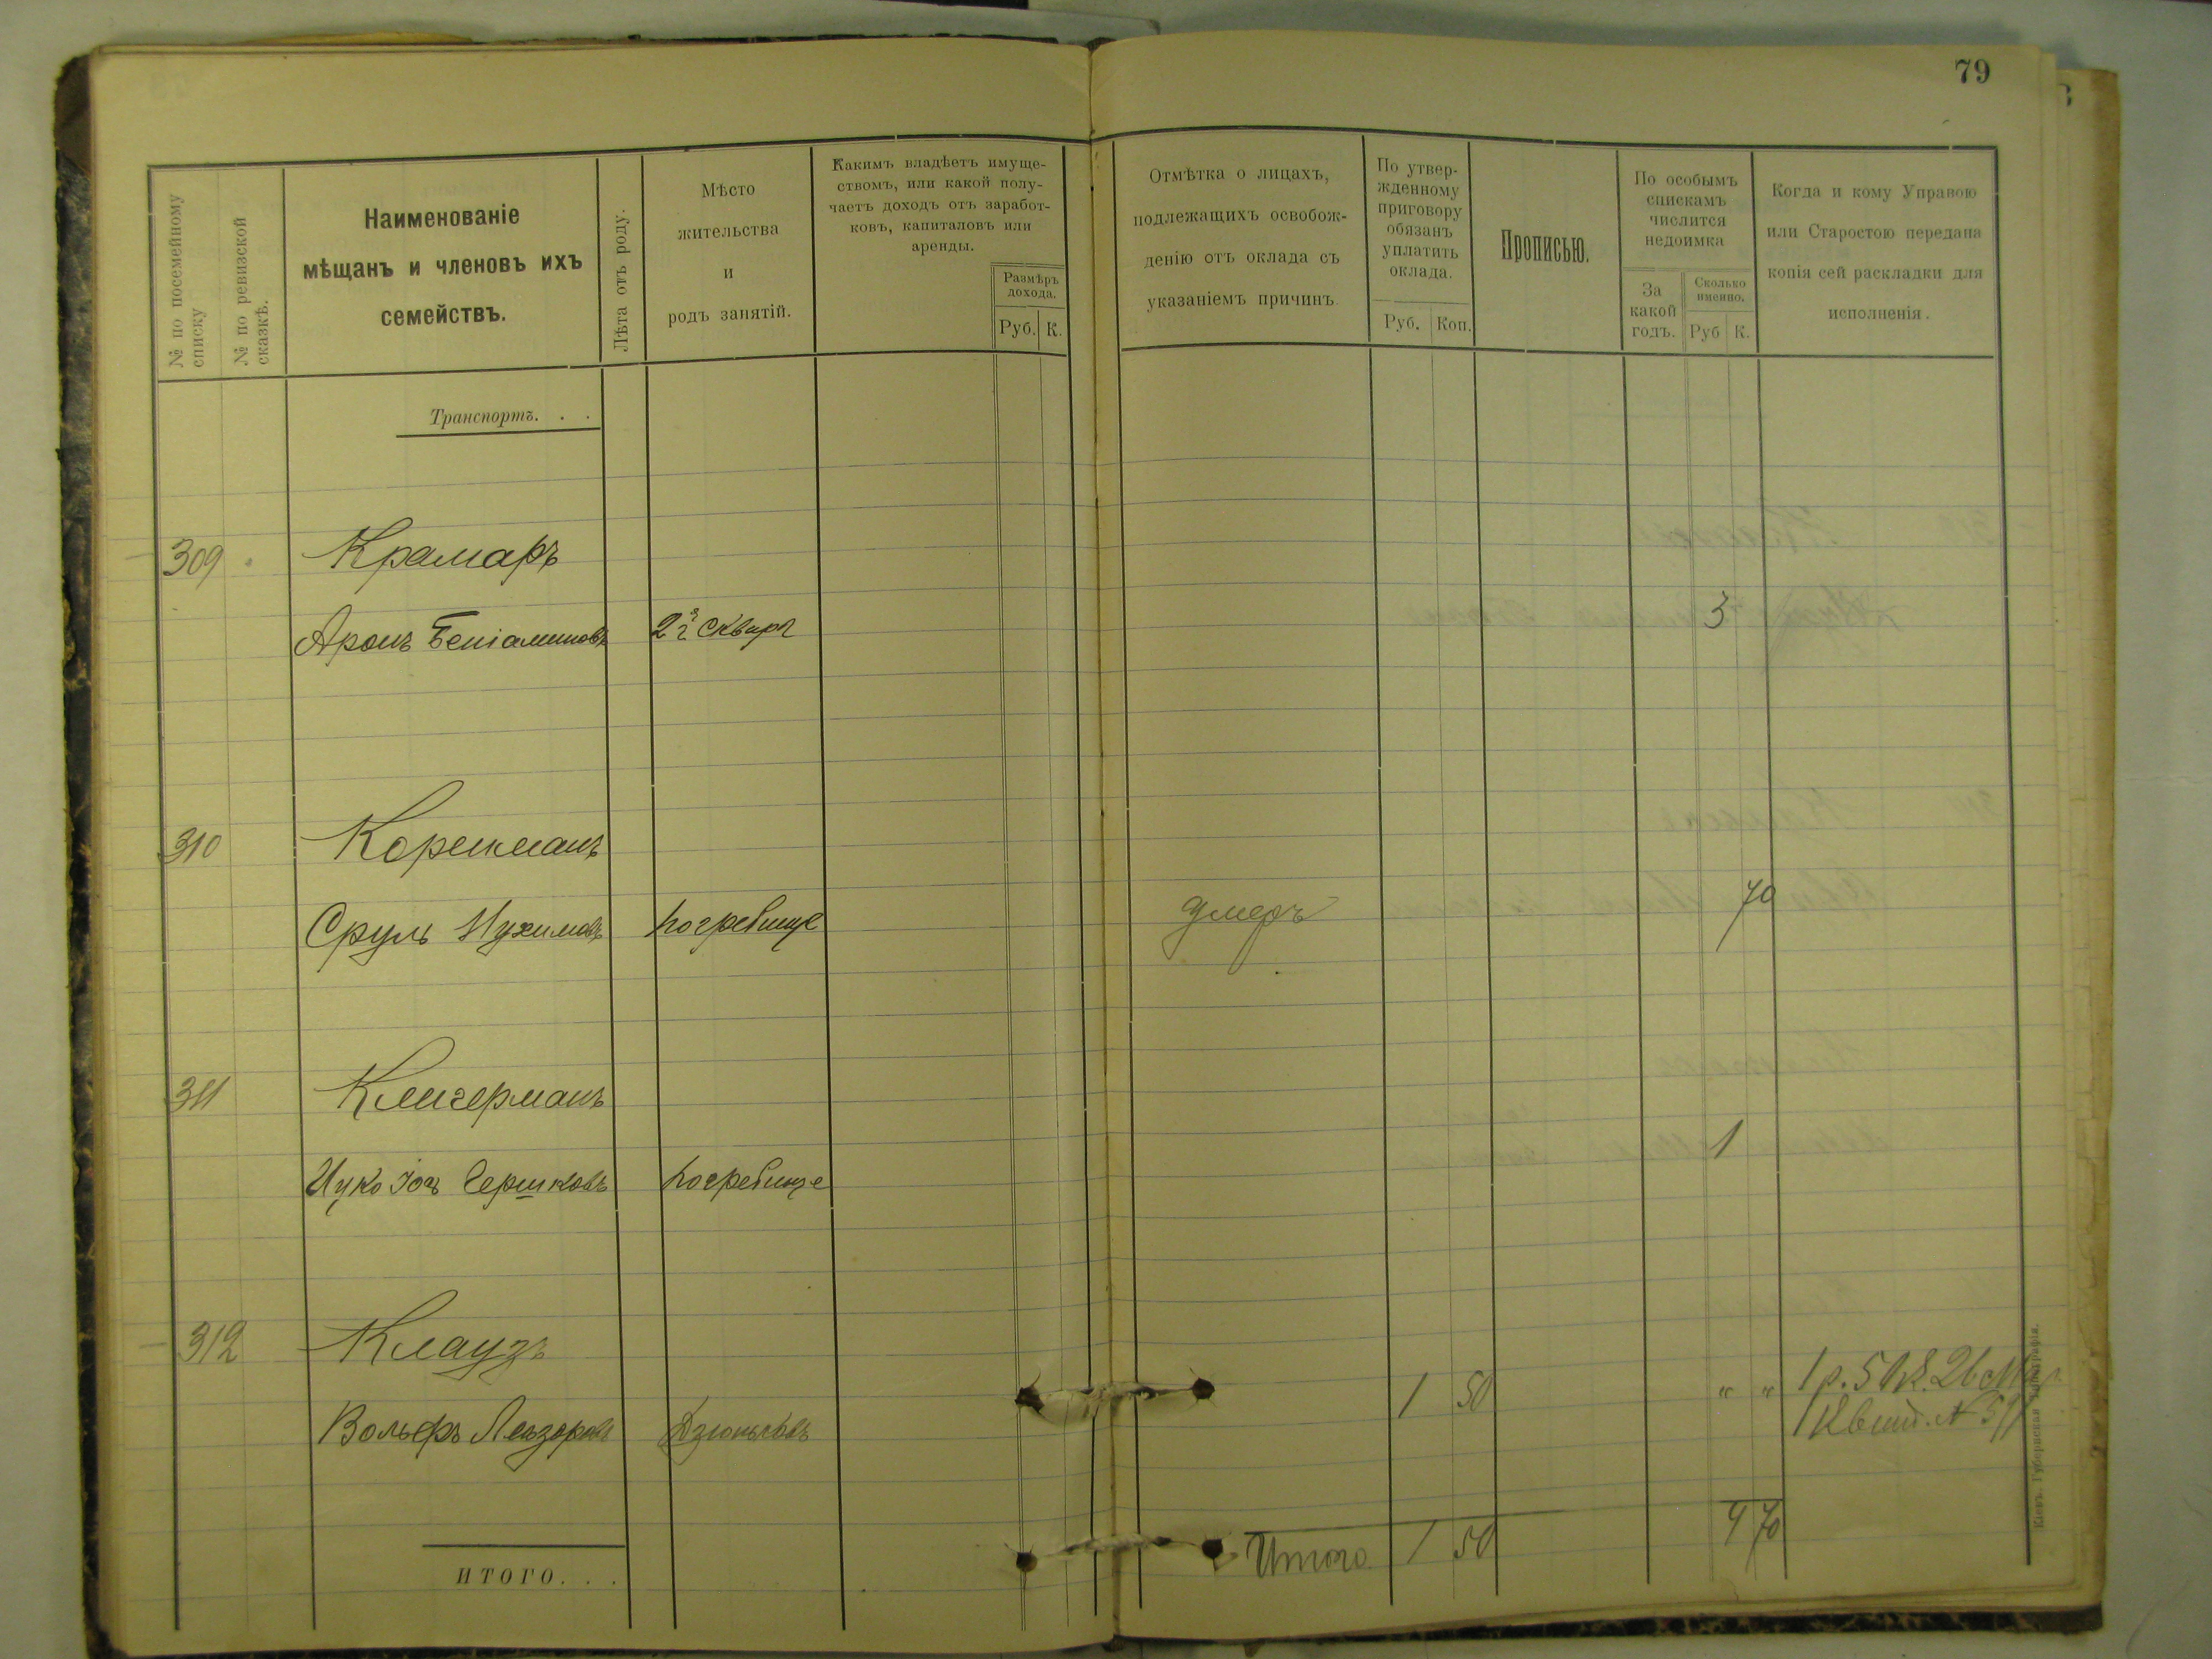 79
№ по посемейному списку
№ по ревизской сказкѣ.
Наименованіе
мѣщанъ и членовъ ихъ
семействъ.
Лѣта отъ роду.
Мѣсто
жительства
и
родъ занятій.
Какимъ владѣетъ имуще-
ствомъ, или какой полу-
чаетъ доходъ отъ заработ-
ковъ, капиталовъ или
аренды.
Размѣръ
дохода.
Руб. К.
Отмѣтка о лицахъ,
подлежащихъ освобож-
денію отъ оклада съ
указаніемъ причинъ
По утвер-
жденному
приговору
обязанъ
уплатить
оклада.
Руб. Коп.
Прописью.
По особымъ
спискамъ
числится
недоимка
За
какой
годъ.
Сколько
именно.
Руб К.
Когда и кому Управою
или Старостою передана
копія сей раскладки для
исполненія.
Транспортъ. . .
309 Крамаръ
Аронъ Беніаминовъ Сквирѣ 3
310 Коренманъ
Сруль Нухимовъ Погребище умеръ 70
311 Клигерманъ
Ицко Іосъ Гершковъ Погребище 1
312 Клаузъ
Вольфъ Лейзоровъ Дзюньковъ 1 50 " " 1 р. 50 к. 26
Квит. №
ИТОГО. . .
Итого 1 50 4 70
Кіевъ. Губернская Типографія.